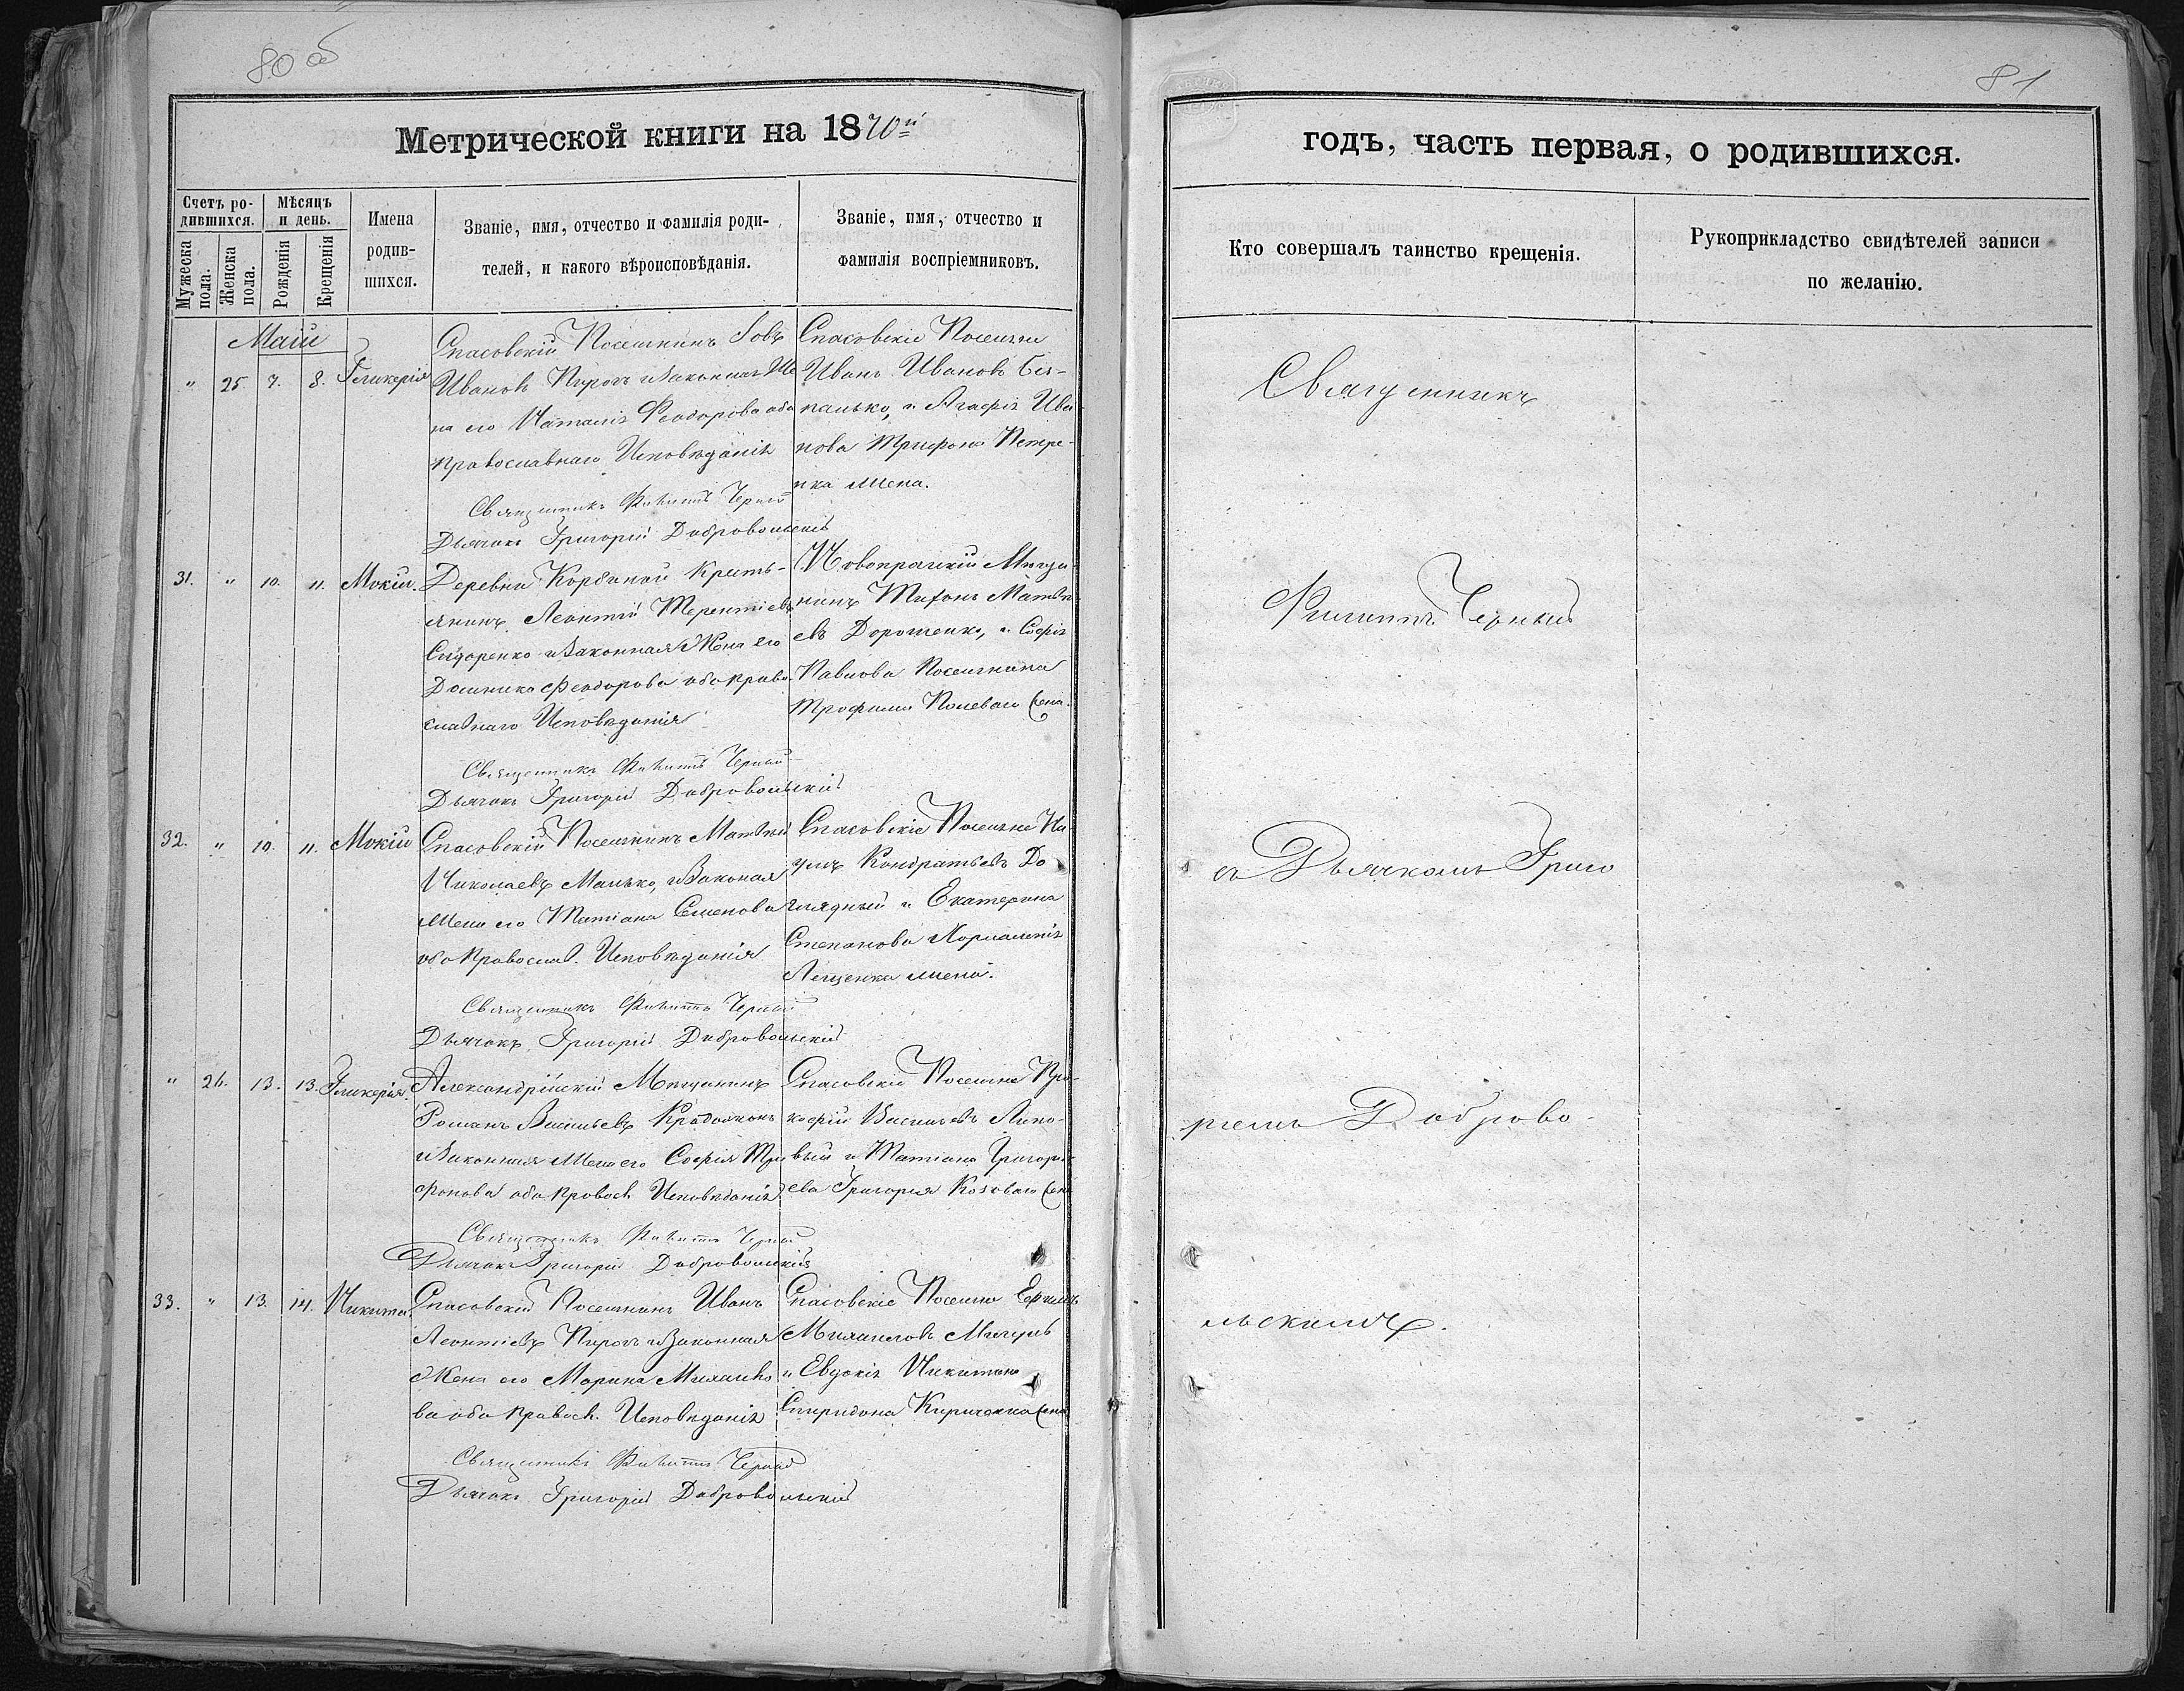 80 об
81
Метрической книги на 1870й
годъ, часть первая, о родившихся.
Счетъ ро-
дившихся.
Мужеска
пола.
Женска
пола.
Мѣсяцъ
и день.
Рожденія
Крещенія
Имена
родив-
шихся.
Званіе, имя, отчество и фамилія роди-
телей, и какого вѣроисповѣданія.
Званіе, имя, отчество и
фамилія воспріемниковъ.
Кто совершалъ таинство крещенія.
Рукоприкладство свидѣтелей записи
по желанію.
Маій
" 25. 7. 8. Гликерія
Спасовскій Поселянинъ Іовъ
Ивановъ Пирогъ и Законная Же
на его Наталія Феодорова оба
православнаго Исповѣданія
Священникъ Филиппъ Черный
Дьячокъ Григорій Добровольскій
Спасовскіе Поселяне
Иванъ Ивановъ Без-
палько, и Агафія Ива
нова Трифона Петре-
нка жена.
31. " 10. 11. Мокій.
Деревни Корбиной Кресть-
янинъ Леонтій Терентіевъ
Сидоренко и Законная Жена его
Домника Феодорова оба право-
славнаго Исповѣданія
Священникъ Филиппъ Черный
Дьячокъ Григорій Добровольскій
Новопражскій Мѣща
нинъ Тихонъ Матвѣ
евъ Дорошенко, и Софія
Павлова Поселянина
Трофима Полеваго жена.
32. " 10. 11. Мокій
Спасовскій Поселянинъ Матвѣй
Николаевъ Манько, и Законая
Жена его Татіана Семенова
оба Православ. Исповѣданія
Священникъ Филиппъ Черный
Дьячокъ Григорій Добровольскій
Спасовскіе Поселяне На-
умъ Кондратьевъ До
глядный и Екатерина
Степанова
Лещенка жена.
" 26. 13. 13. Гликерія.
Александрійскій Мѣщанинъ
Романъ Васильевъ
и Законная Жена его Софія Три
фонова оба Правосл. Исповѣданія
Священникъ Филиппъ Черный
Дьячокъ Григорій Добровольскій
Спасовскіе Поселяне Про-
кофій Васильевъ Липо-
вый и Татіана Григорь-
ева Григорія Козоваго жена
33. " 13. 14. Никита.
Спасовскій Поселянинъ Иванъ
Леонтіевъ Пирогъ и Законная
Жена его Марина Михаило
ва оба Правосл. Исповѣданія
Священникъ Филиппъ Черный
Дьячокъ Григорій Добровольскій
Спасовскіе Поселяне
Михаиловъ
и Евдокія Никитина
Спиридона Кириченка жена
Священникъ
Филиппъ Черный
съ Дьячкомъ Григо
ріемъ Доброво-
льскимъ.